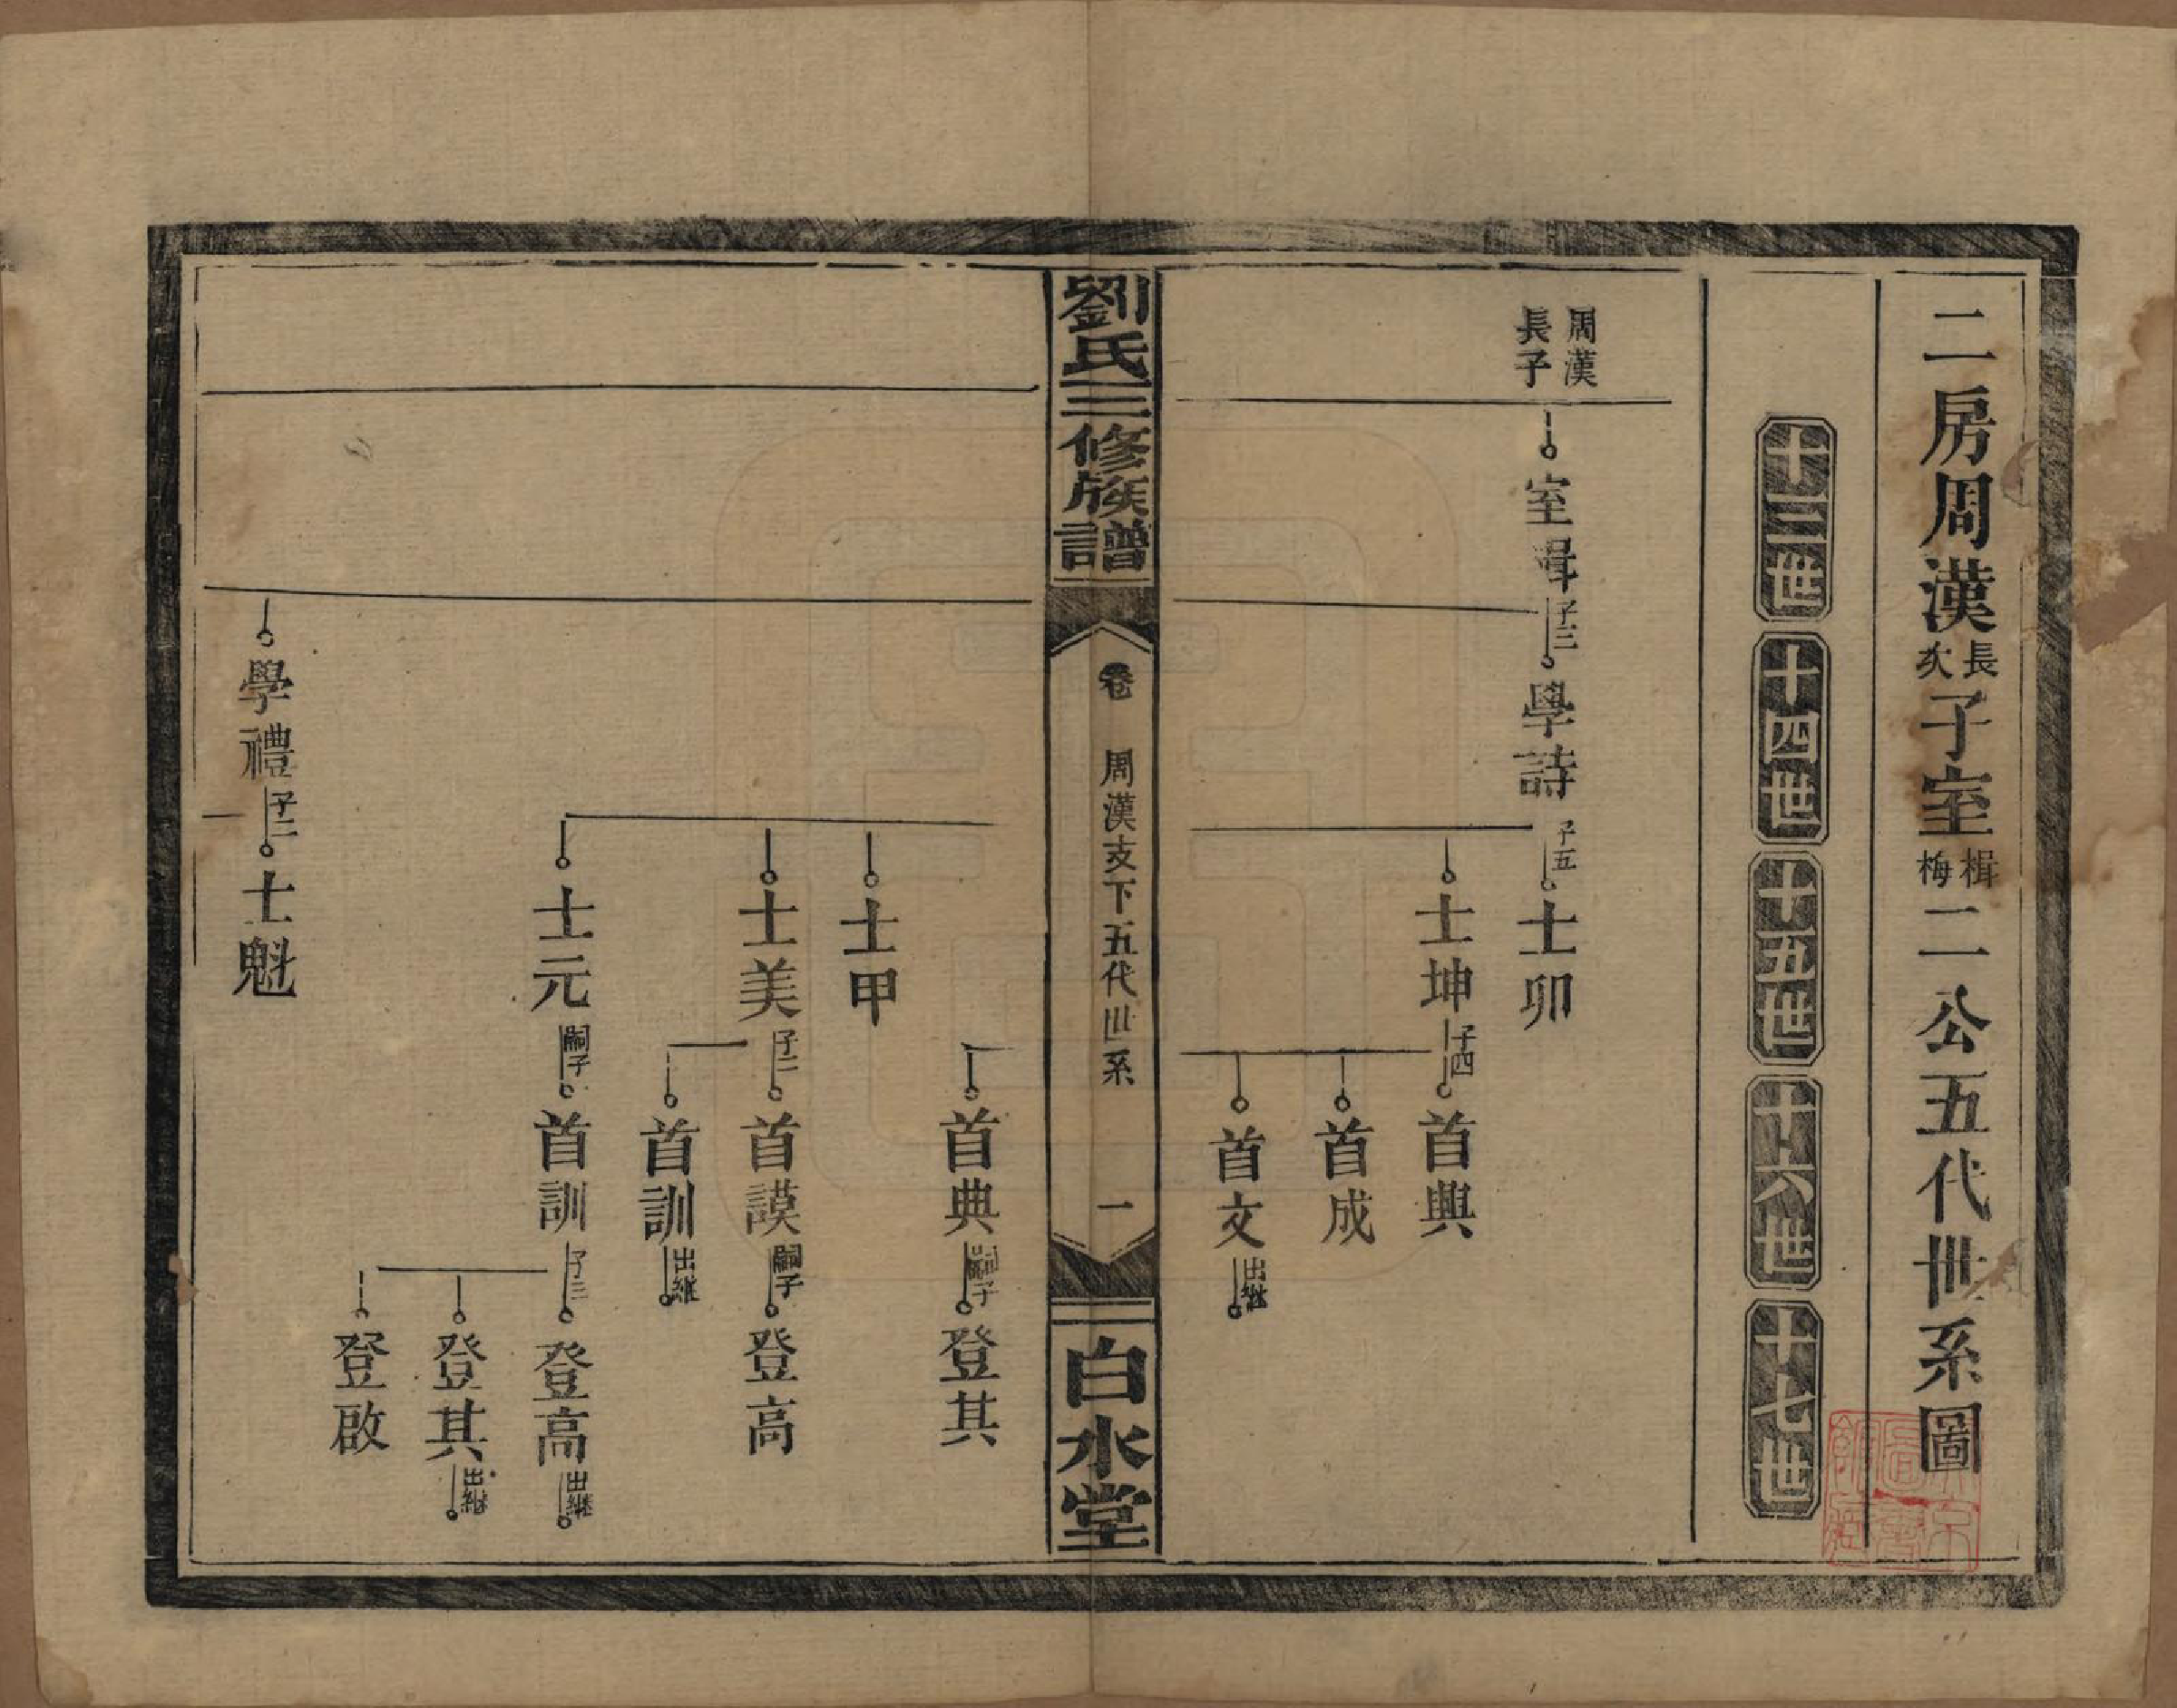 二房周漢長次子室楫梅二公五代世系圖
十三世
十四世
十五世
十六世
十七世
周漢長子
室楫 子二 學詩 子五 士卯
士坤 子四 首興
首成
首文 出繼
劉氏三修族譜 卷 周漢支下五代世系 一 白水堂
首典 嗣子 登其
士甲
士美 子二 首謨 嗣子 登高
首訓 出繼
士元 嗣子 首訓 子三 登高 出繼
登其 出繼
登啟
學禮 子二 士魁